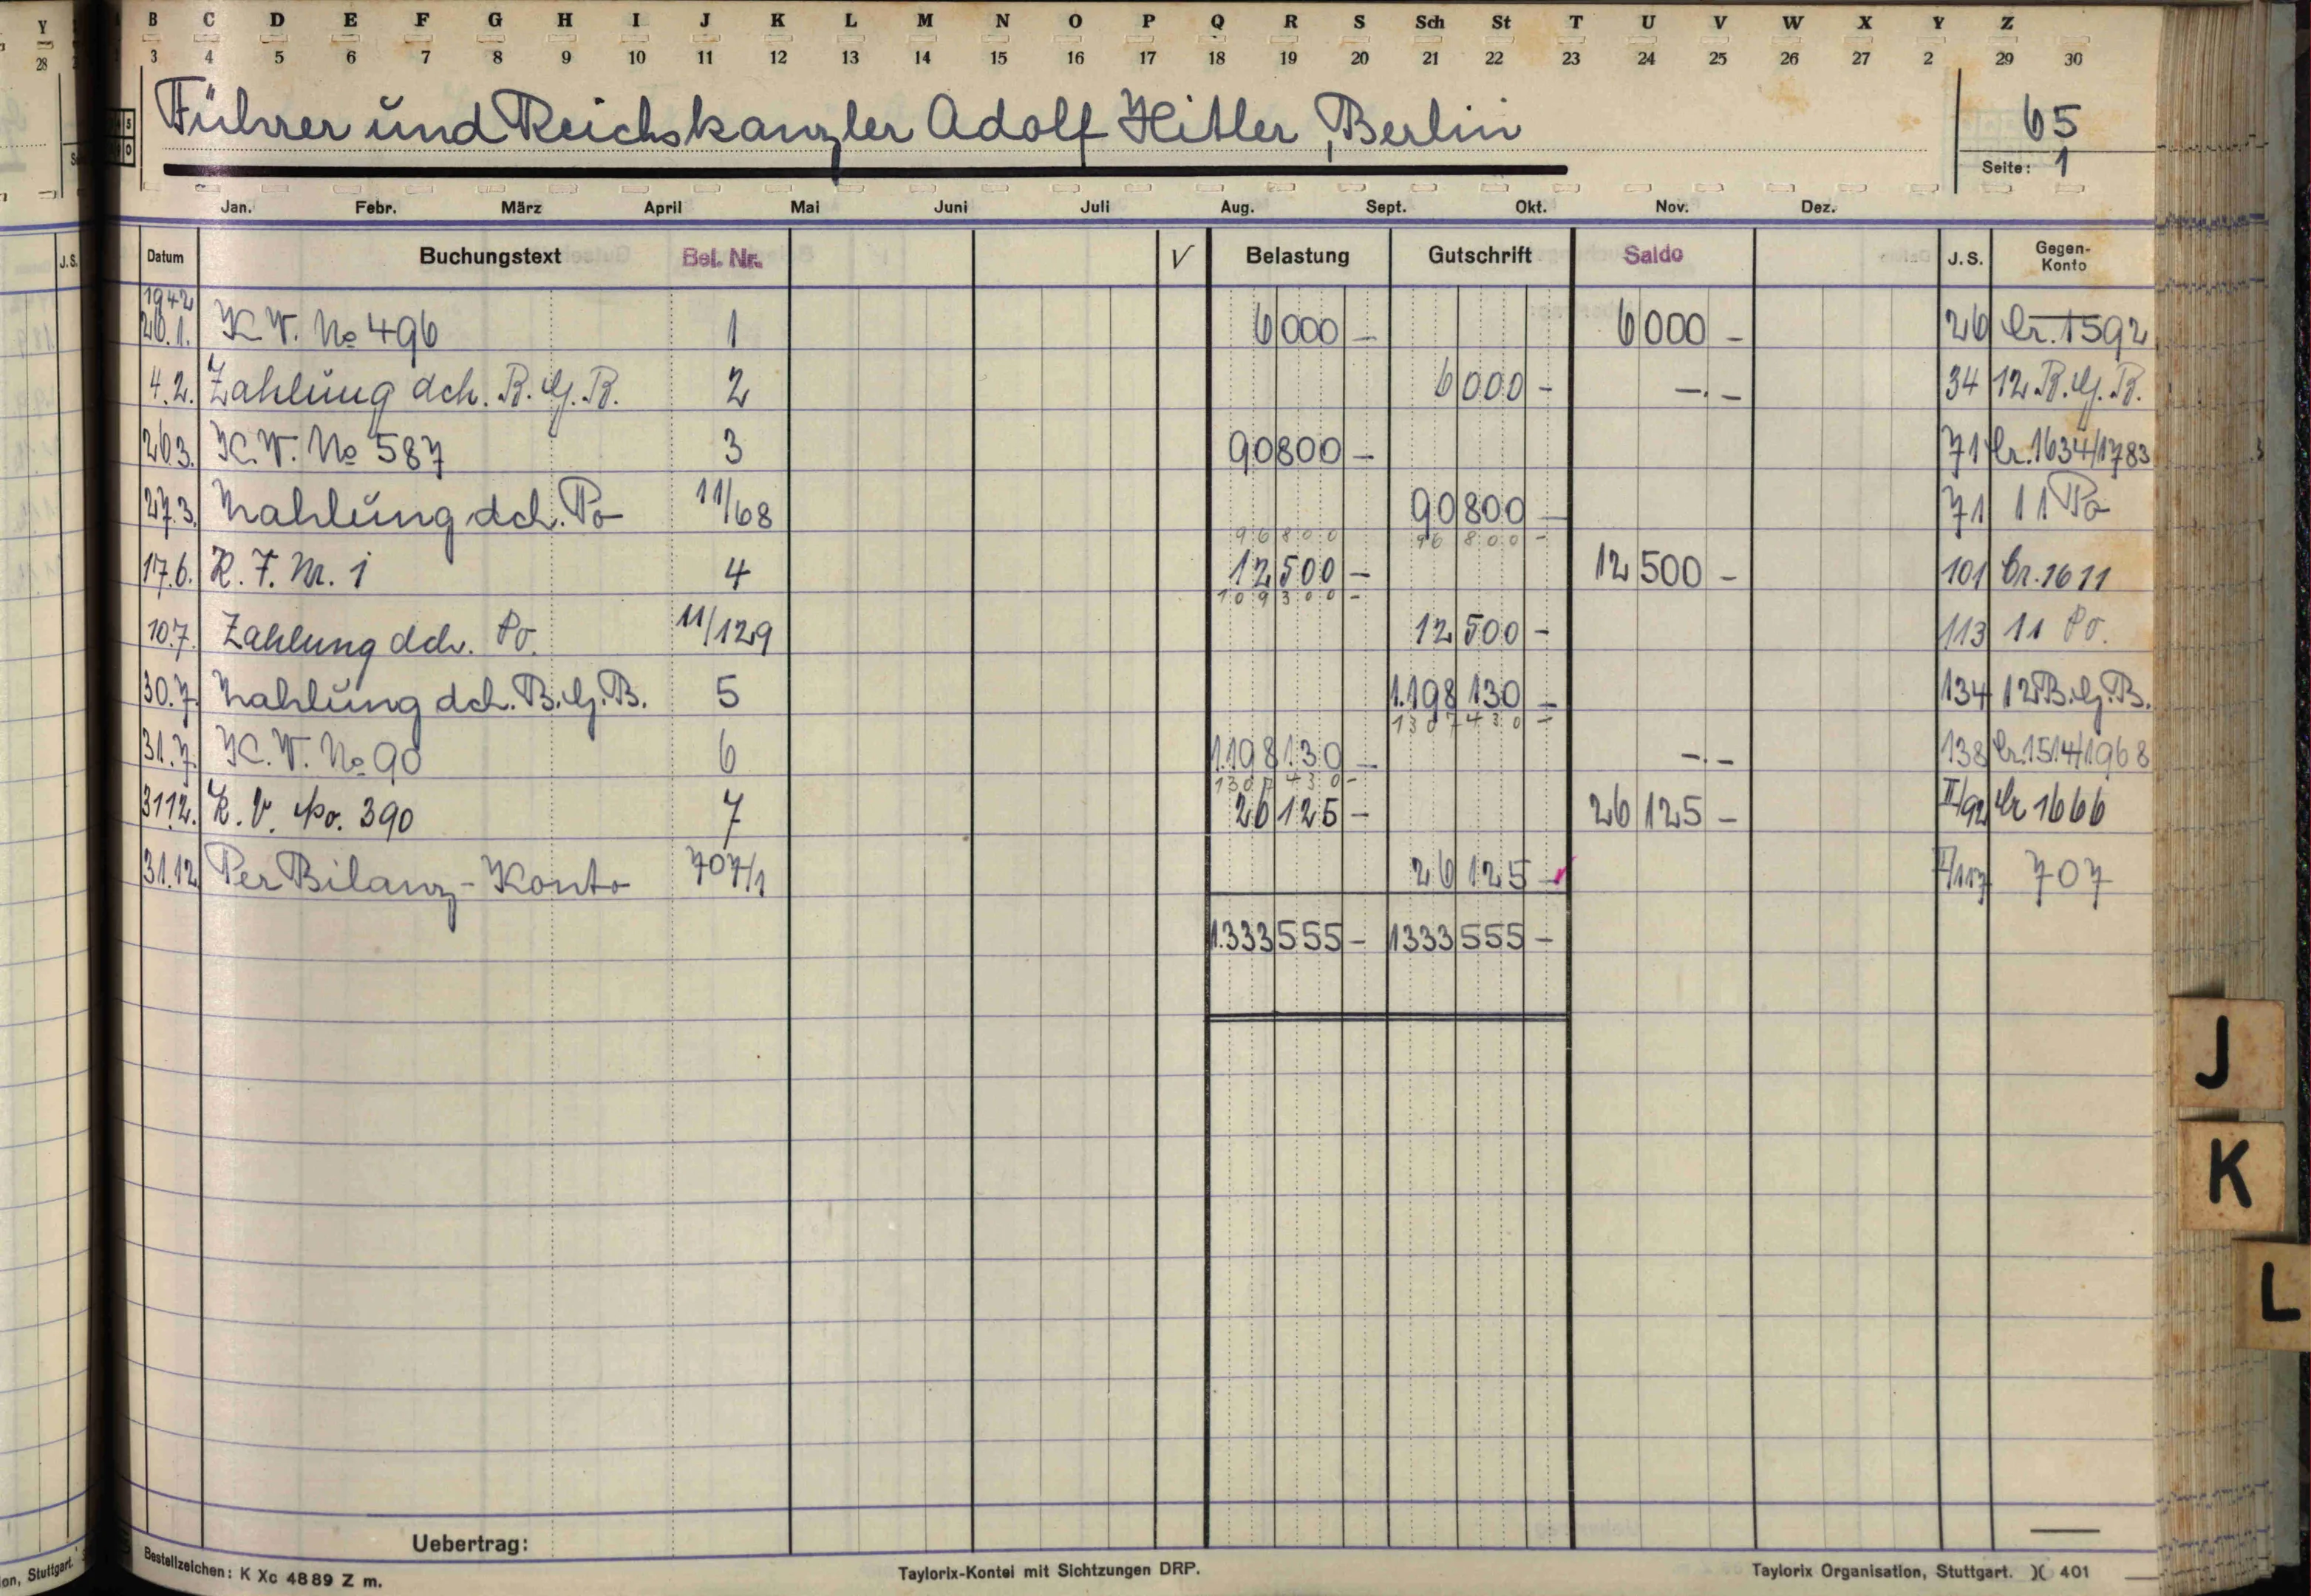 Y B C D E F G H I J K L M N O P Q R S Sch St T U V W X Y Z
28 3 4 5 6 7 8 9 10 11 12 13 14 15 16 17 18 19 20 21 22 23 24 25 26 27 2 29 30
Führer und Reichskanzler Adolf Hitler, Berlin 65
Seite: 1
Jan. Febr. März April Mai Juni Juli Aug. Sept. Okt. Nov. Dez.
J.S. Datum Buchungstext Bel. Nr. V Belastung Gutschrift Saldo J.S. Gegen-Konto
1942
26.1. K.V. No 496 1 6000 - 6000 - 26 Cr. 1592
4.2. Zahlung dch. B.G.B. 2 6000 - -.- 34 12 B.G.B.
26.3. K.V. No 587 3 90800 - 71 Cr. 1634/1783
27.3. Zahlung dch. Po 11/68 90800 - 71 11 Po
96800 96800 -
17.6. K.V. Nr. 1 4 12500 - 12500 - 101 Cr. 1611
109300 -
10.7. Zahlung dch. Po. 11/129 12500 - 113 11 Po.
30.7. Zahlung dch. B.G.B. 5 1.198130 - 134 12 B.G.B.
1307430 -
31.7. K.V. No 90 6 1.198130 - -.- 138 Cr. 1514/1968
1307430 -
31.12. K.V. No. 390 7 26125 - 26125 - II/92 Cr 1666
31.12. Per Bilanz-Konto 707/1 26125 - II/117 707
1.333555 - 1333555 -
J
K
L
Uebertrag:
Bestellzeichen: K Xc 4889 Z m. Taylorix-Kontei mit Sichtzungen DRP. Taylorix Organisation, Stuttgart. 401
on, Stuttgart.